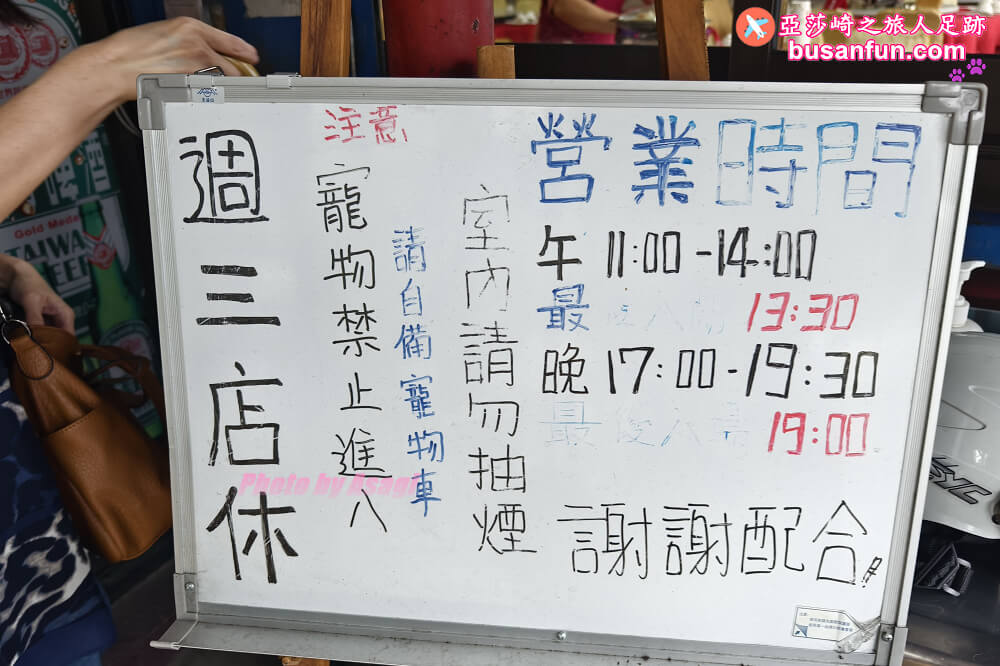 亞莎崎之旅人足跡
busanfun.com
營業時間
午 11:00-14:00
最後入場 13:30
晚 17:00-19:30
最後入場 19:00
室內請勿抽煙
注意
寵物禁止進入
請自備寵物車
週三店休
謝謝配合!
Photo by Asagi
Gold Medal
TAIWAN
BEER
啤酒
SYC